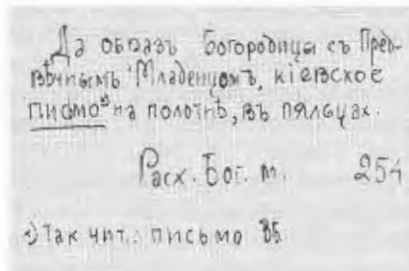 Да образъ Богородицы съ Пред-
вѣчнымъ Младенцомъ, кіевское
писмо¹⁾ на полотнѣ, въ пяльцах.
Расх. Бог. м. 254
¹⁾ Так чит.: письмо